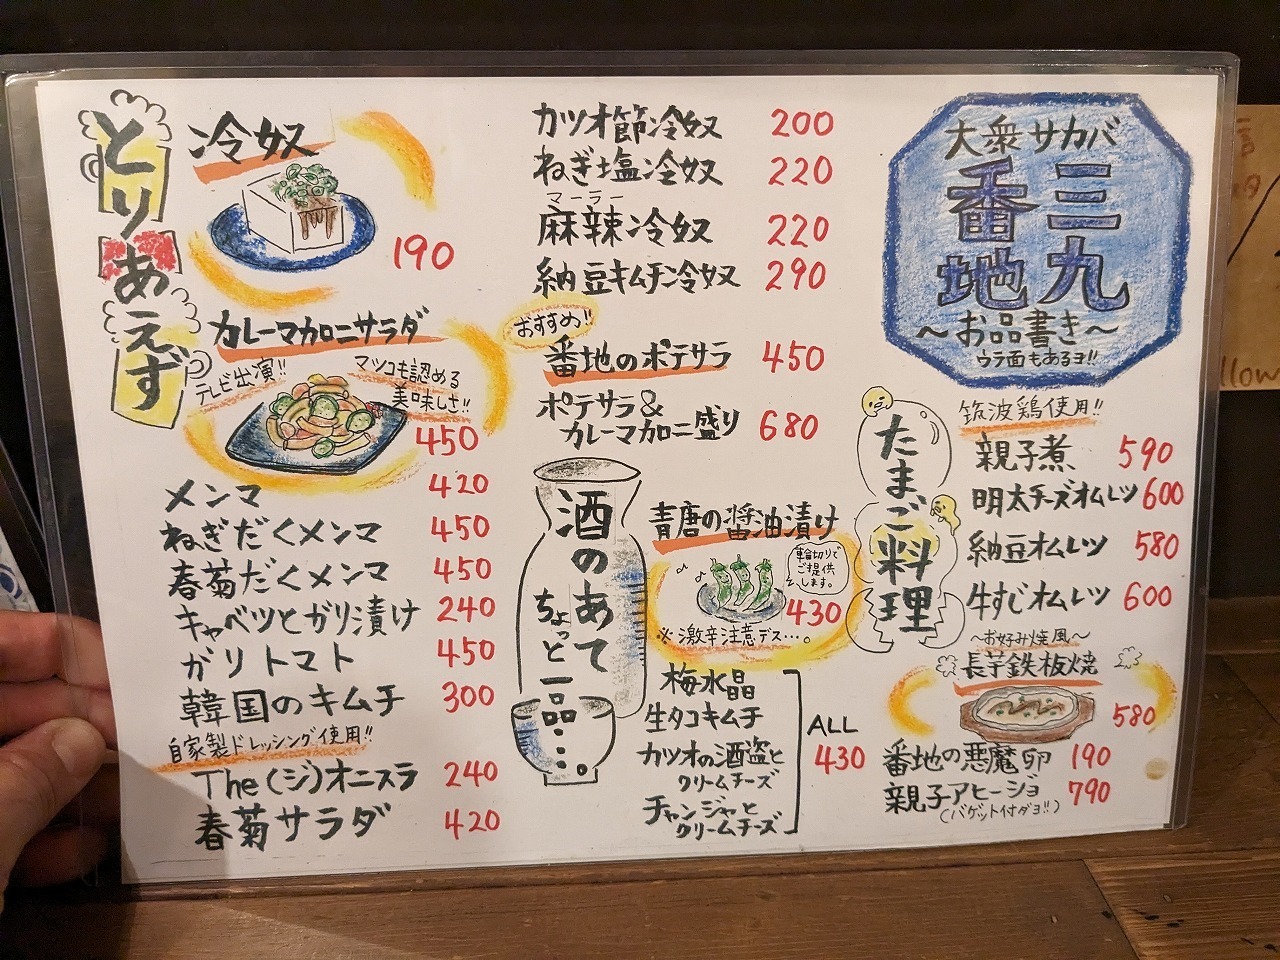 大衆サカバ
三九
番地
～お品書き～
ウラ面もあるヨ!!
とりあえず
冷奴
190
カレーマカロニサラダ
テレビ出演!!
マツコも認める
美味しさ!!
450
メンマ 420
ねぎだくメンマ 450
春菊だくメンマ 450
キャベツとガリ漬け 240
ガリトマト 450
韓国のキムチ 300
自家製ドレッシング使用!!
The(ジ)オニスラ 240
春菊サラダ 420
カツオ節冷奴 200
ねぎ塩冷奴 220
マーラー
麻辣冷奴 220
納豆キムチ冷奴 290
おすすめ!!
番地のポテサラ 450
ポテサラ&
カレーマカロニ盛り 680
酒のあて
ちょっと一品….
青唐の醤油漬け
輪切りで
ご提供
します。
430
※激辛注意デス…。
梅水晶
生タコキムチ
カツオの酒盗と
クリームチーズ
チャンジャと
クリームチーズ
ALL
430
たまご料理
筑波鶏使用!!
親子煮 590
明太チーズオムレツ 600
納豆オムレツ 580
牛すじオムレツ 600
～お好み焼風～
長芋鉄板焼
580
番地の悪魔卵 190
親子アヒージョ 790
(バゲット付ダヨ!!)